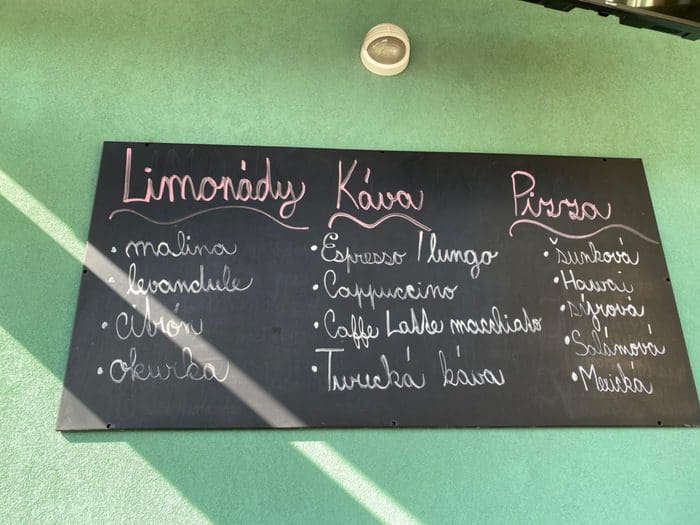 Limonády
• malina
• levandule
• citrón
• okurka
Káva
• Espresso / lungo
• Cappuccino
• Caffe Latte macchiato
• Turecká káva
Pizza
• šunková
• Hawai
• sýrová
• Salámová